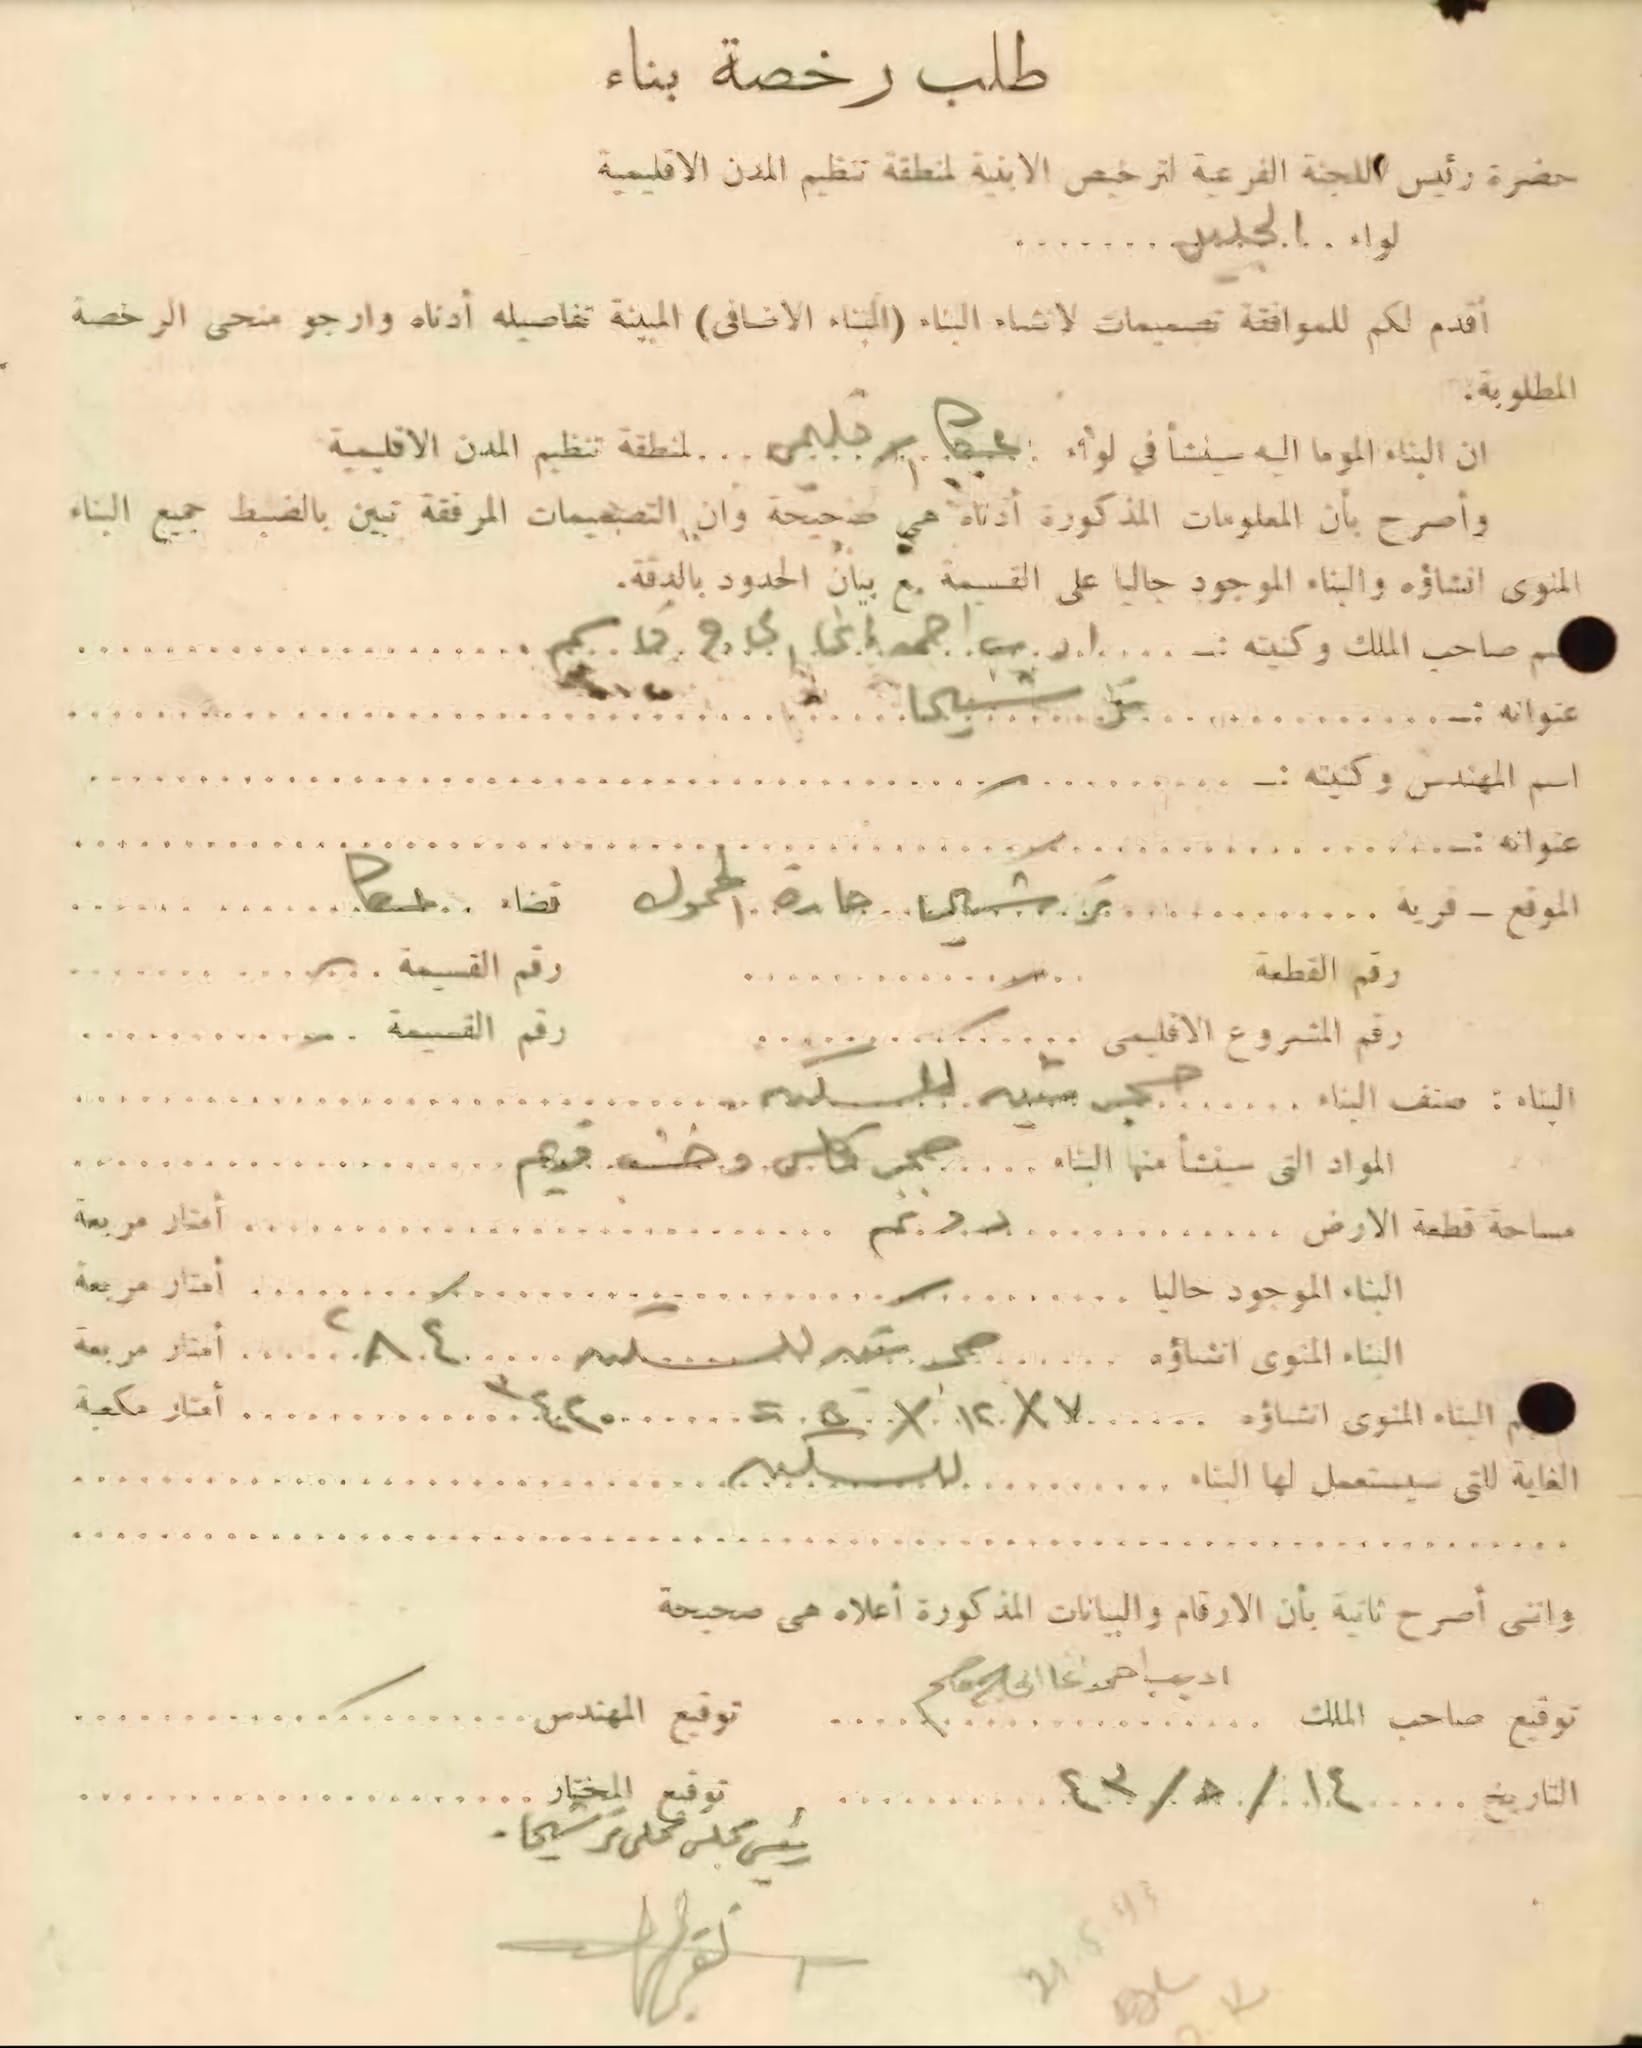 طلب رخصة بناء
حضرة رئيس اللجنة الفرعية لترخيص الابنية لمنطقة تنظيم المدن الاقليمية
لواء . الجليل
أقدم لكم للموافقة تصميمات لانشاء البناء (البناء الاضافى) المبينة تفاصيله أدناه وارجو منحى الرخصة
المطلوبة:
ان البناء الموما اليه سينشأ في لواء : عكا لمنطقة تنظيم المدن الاقليمية
وأصرح بأن المعلومات المذكورة أدناه هي صحيحة وان التصميمات المرفقة تبين بالضبط جميع البناء
المنوى انشاؤه والبناء الموجود حاليا على القسيمة مع بيان الحدود بالدقة.
صاحب الملك وكنيته :ـ اديب احمد اغا الحاج قاسم
عنوانه :ـ ترشيحا
اسم المهندس وكنيته :ـ
عنوانه :ـ
الموقع ـ قرية ترشيحا حارة قضاء عكا
رقم القطعة رقم القسيمة
رقم المشروع الاقليمى رقم القسيمة
البناء : صنف البناء للسكن
المواد التى سينشأ منها البناء حجر كلس وخشب
مساحة قطعة الارض دونم أمتار مربعة
البناء الموجود حاليا أمتار مربعة
البناء المنوى انشاؤه للسكن ٨٤ أمتار مربعة
البناء المنوى انشاؤه ٧ × ١٢ × ٥ = ٤٢٠ أمتار مكعبة
الغاية للتى سيستعمل لها البناء للسكن
واننى أصرح ثانية بأن الارقام والبيانات المذكورة أعلاه هى صحيحة
اديب احمد اغا الحاج قاسم
توقيع صاحب الملك توقيع المهندس
التاريخ ١٤ / ٨ / ٤٣ توقيع المختار
رئيس مجلس محلي ترشيحا